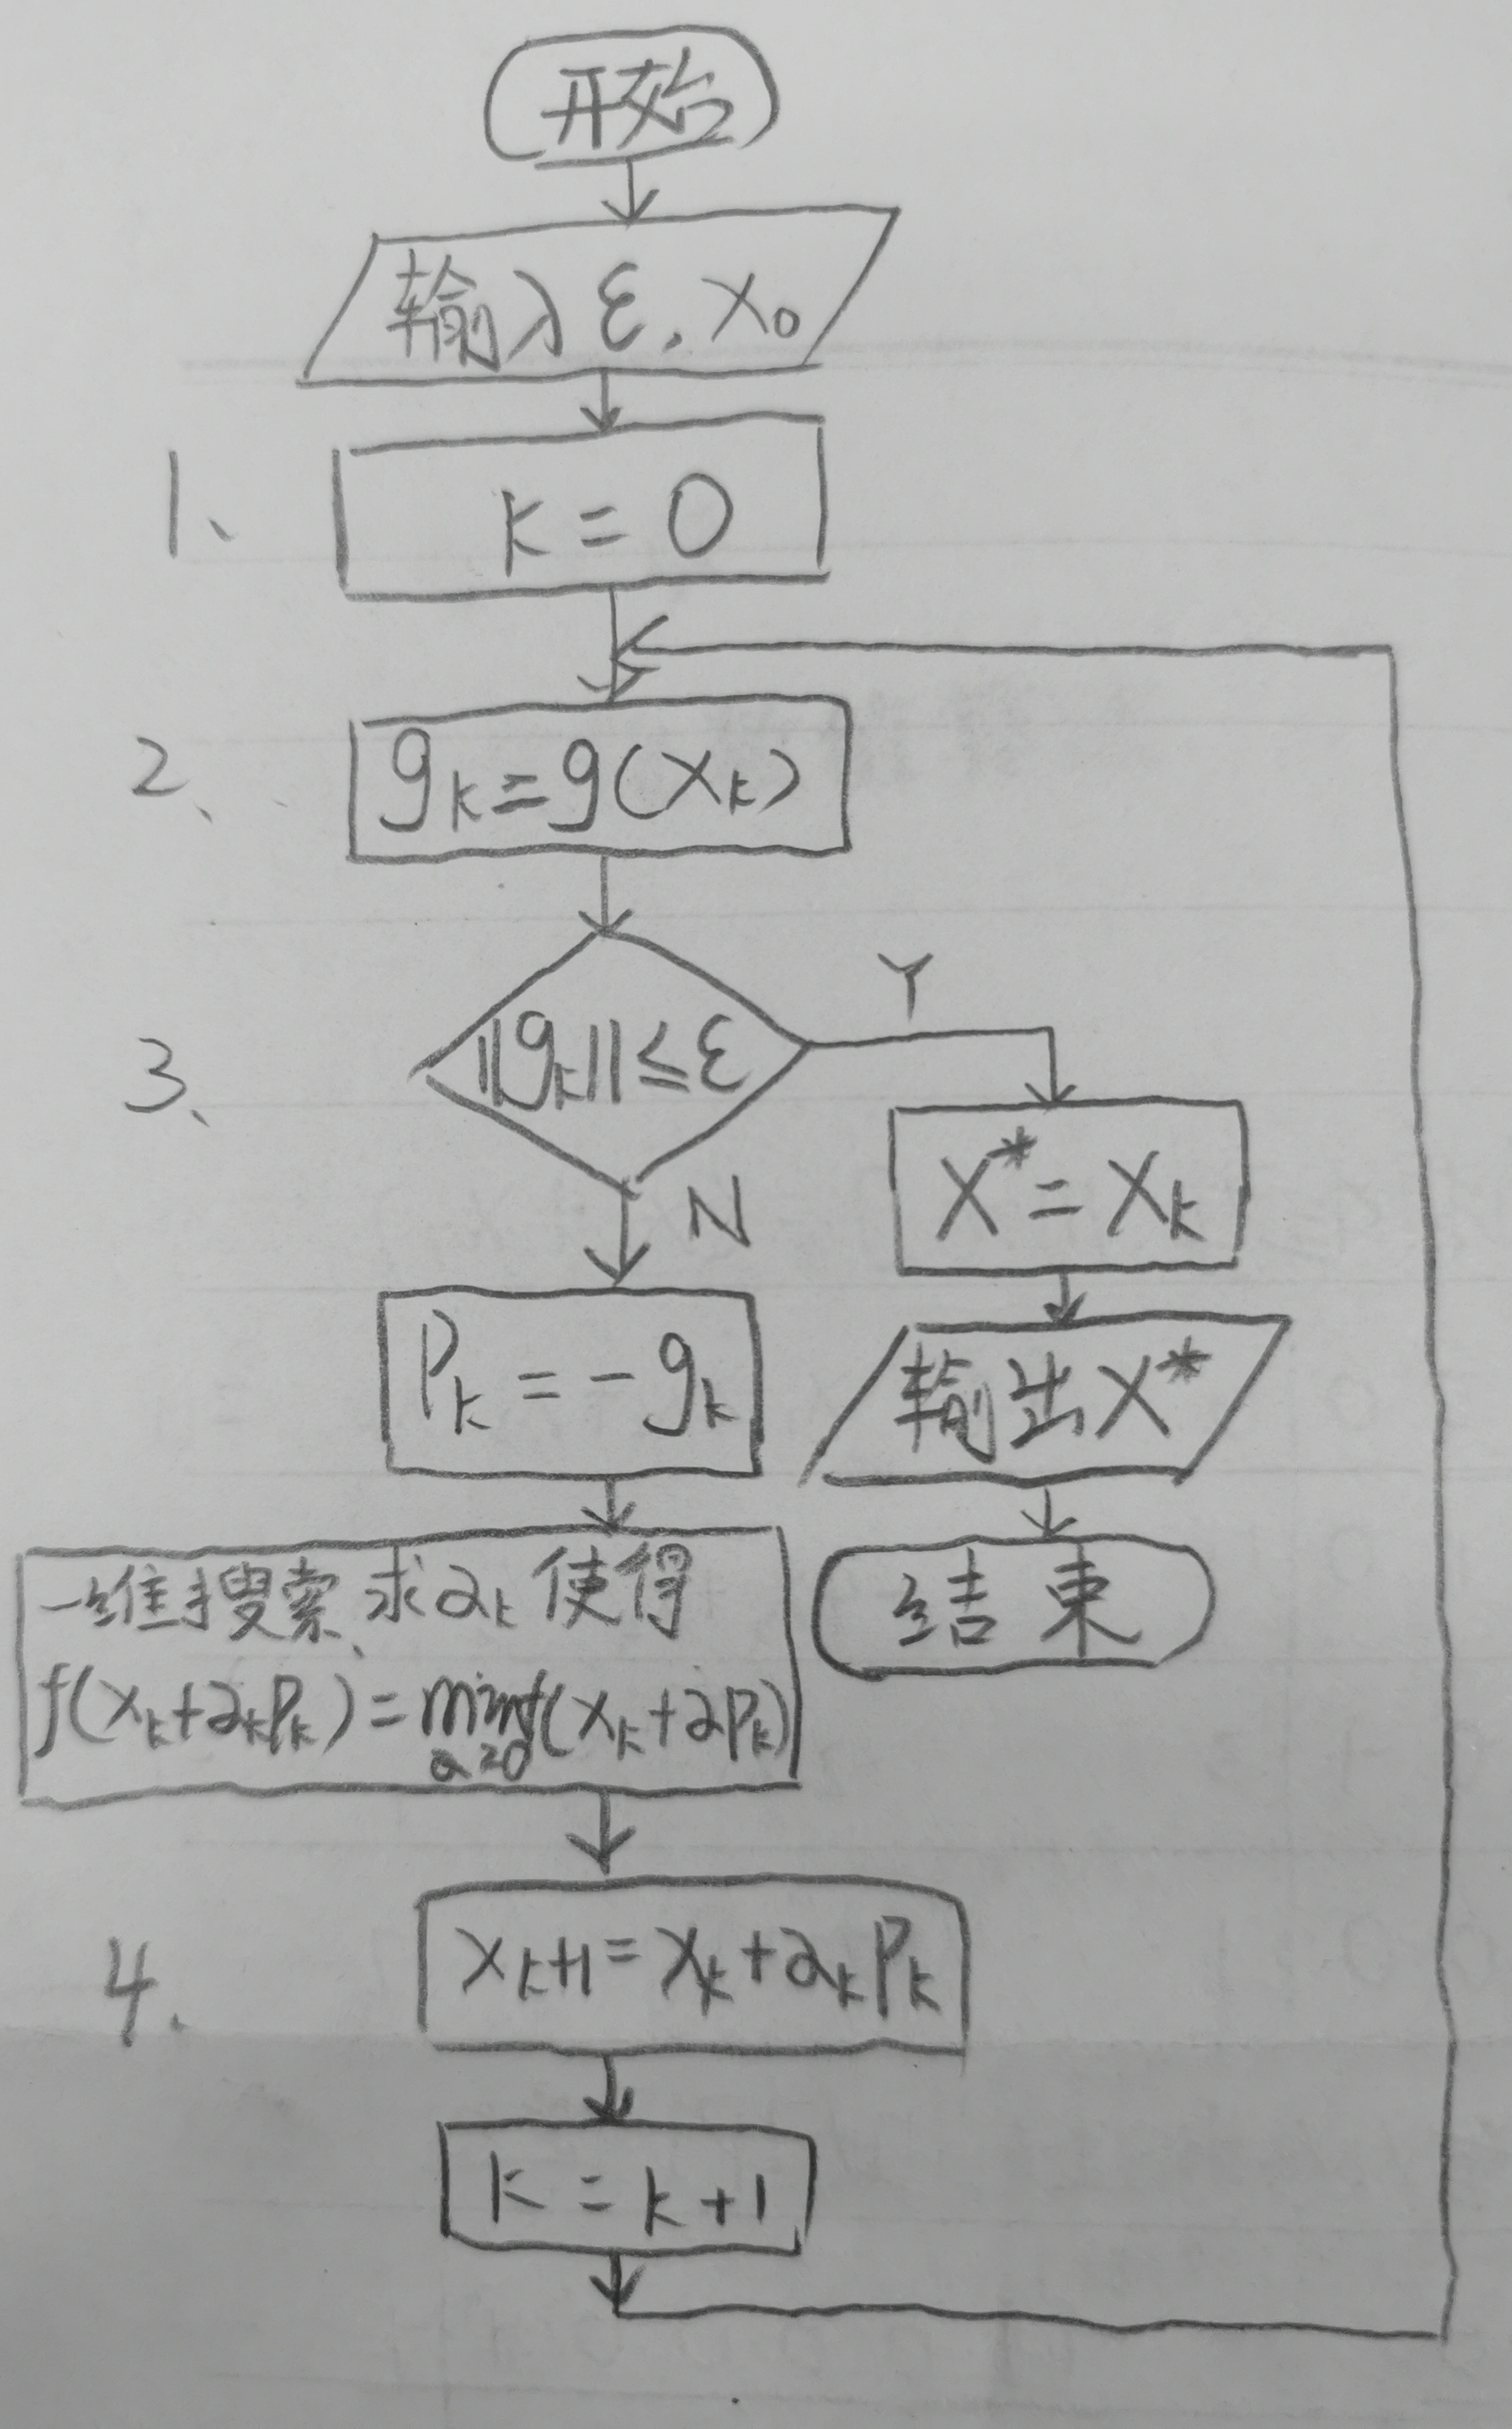 开始
输入 ε, x₀
1、
k = 0
2、
gₖ = g(xₖ)
3、
||gₖ|| ≤ ε
Y
N
x* = xₖ
Pₖ = -gₖ
输出 x*
结束
一维搜索、求 αₖ 使得
f(xₖ+αₖPₖ) = min f(xₖ+αPₖ)
α≥0
4.
xₖ₊₁ = xₖ + αₖPₖ
k = k+1